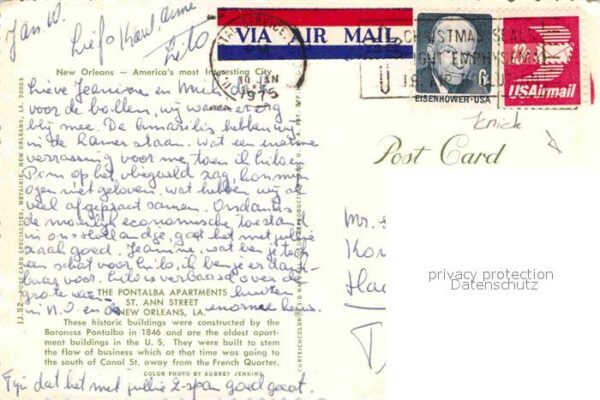 Jan W.
Liefs Karel, Anne
VIA AIR MAIL
10 JAN
1975
CHRISTMAS SEALS
FIGHT EMPHYSEMA
EISENHOWER·USA
6c
USAirmail
knick
Post Card
New Orleans — America's most Interesting City
Lieve Jeannine en Muk, dank
voor de bollen, wij waren er erg
blij mee. De Amarilis hebben wij
in de kamer staan. Wat een enorme
verrassing voor me, toen ik
Pom op het vliegveld zag, kon mijn
ogen niet geloven. Wat hebben wij al
veel afgepraat samen. Ondanks
de moeilijk economische toestand
in ons Hollandje, gaat het met jullie
zaak goed. Jeannine, wat ben je toch
een schat voor, ik ben je er dank-
baar voor. is verbaasd over de
grote
in N.O. en de enorme huis.
THE PONTALBA APARTMENTS
ST. ANN STREET
NEW ORLEANS, LA.
These historic buildings were constructed by the
Baroness Pontalba in 1846 and are the oldest apart-
ment buildings in the U. S. They were built to stem
the flow of business which at that time was going
to the south of Canal St. away from the French Quarter.
COLOR PHOTO BY AUBREY JENKINS
Fijn dat het met jullie 2-span goed gaat.
IJ.52 - POST CARD SPECIALTIES, METAIRIE, NEW ORLEANS, LA. 70003
Mr.
privacy protection
Datenschutz